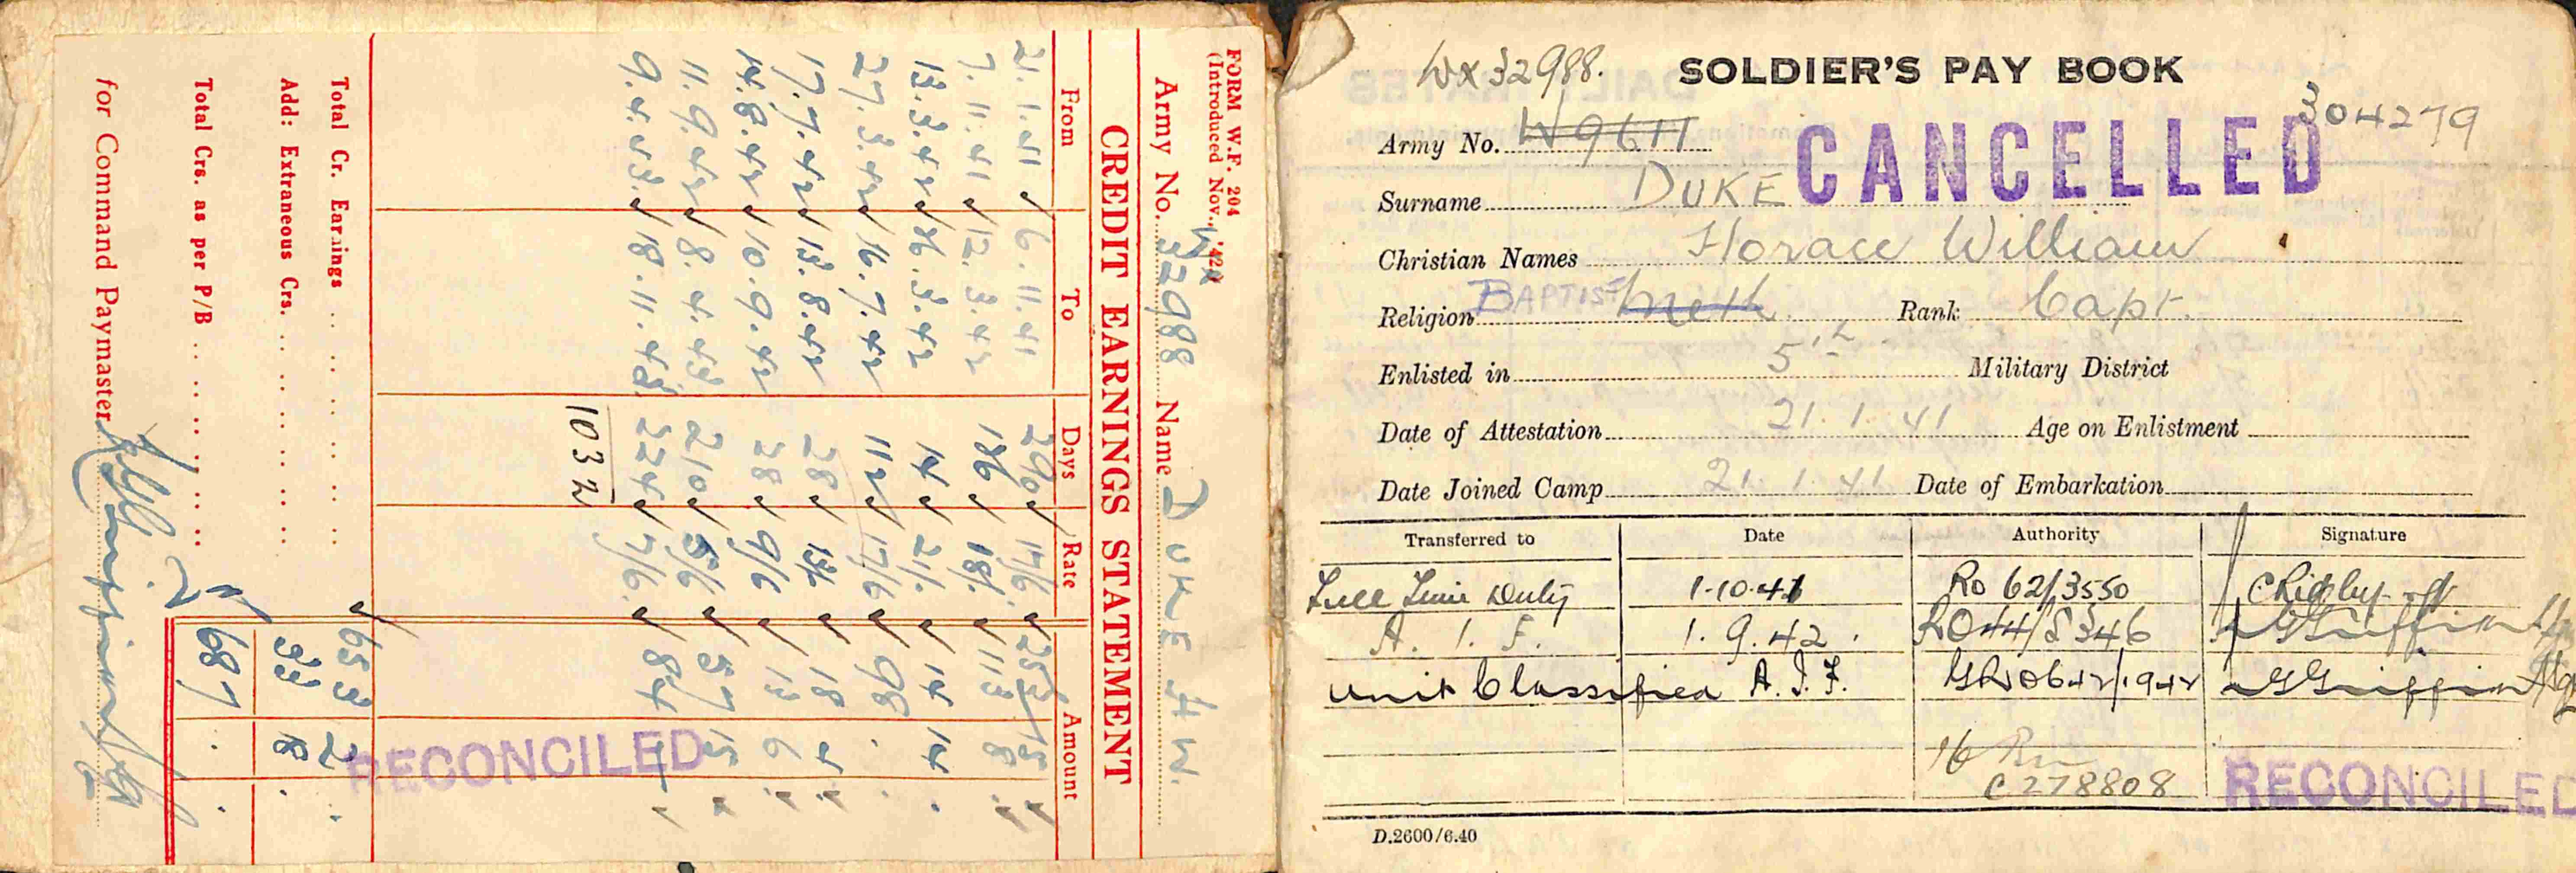 FORM W.F. 204
(Introduced Nov., '42)
Army No. WX 32988 Name DUKE H W.
CREDIT EARNINGS STATEMENT
From To Days Rate Amount
21.1.41 6.11.41 290 17/6 253 15
7.11.41 12.3.42 126 18/- 113 8
13.3.42 26.3.42 14 21/- 14 14
27.3.42 16.7.42 112 17/6 98 .
17.7.42 13.8.42 28 13/- 18 4
14.8.42 10.9.42 28 9/6 13 6
11.9.42 8.4.43 210 5/6 57 15
9.4.43 18.11.43 224 7/6 84
1032
RECONCILED
Total Cr. Earnings 653 2
Add: Extraneous Crs. 33 18
Total Crs. as per P/B 687 .
for Command Paymaster
WX32988.
SOLDIER'S PAY BOOK
304279
Army No. W9611
CANCELLED
Surname DUKE
Christian Names Horace William
Religion BAPTIST Meth. Rank Capt.
Enlisted in 5th Military District
Date of Attestation 21.1.41 Age on Enlistment
Date Joined Camp 21.1.41 Date of Embarkation
Transferred to Date Authority Signature
Full Time Duty 1.10.41 RO 62/3550
A. I. F. 1.9.42. RO44/S346
Unit Classified A.I.F.
C278808
RECONCILED
D.2600/6.40